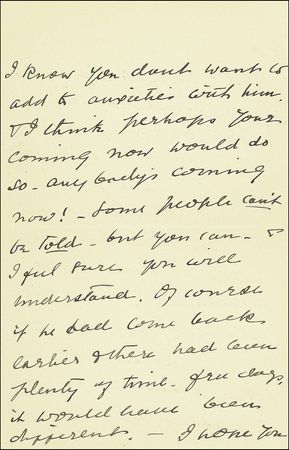 I know you don't want to
add to anxieties with him.
& I think perhaps your
coming now would do
so - anybody's coming
now! - Some people can't
be told - but you can - &
I feel sure you will
understand. Of course
if he had come back
earlier & there had been
plenty of time - free days,
it would have been
different. - I hope you